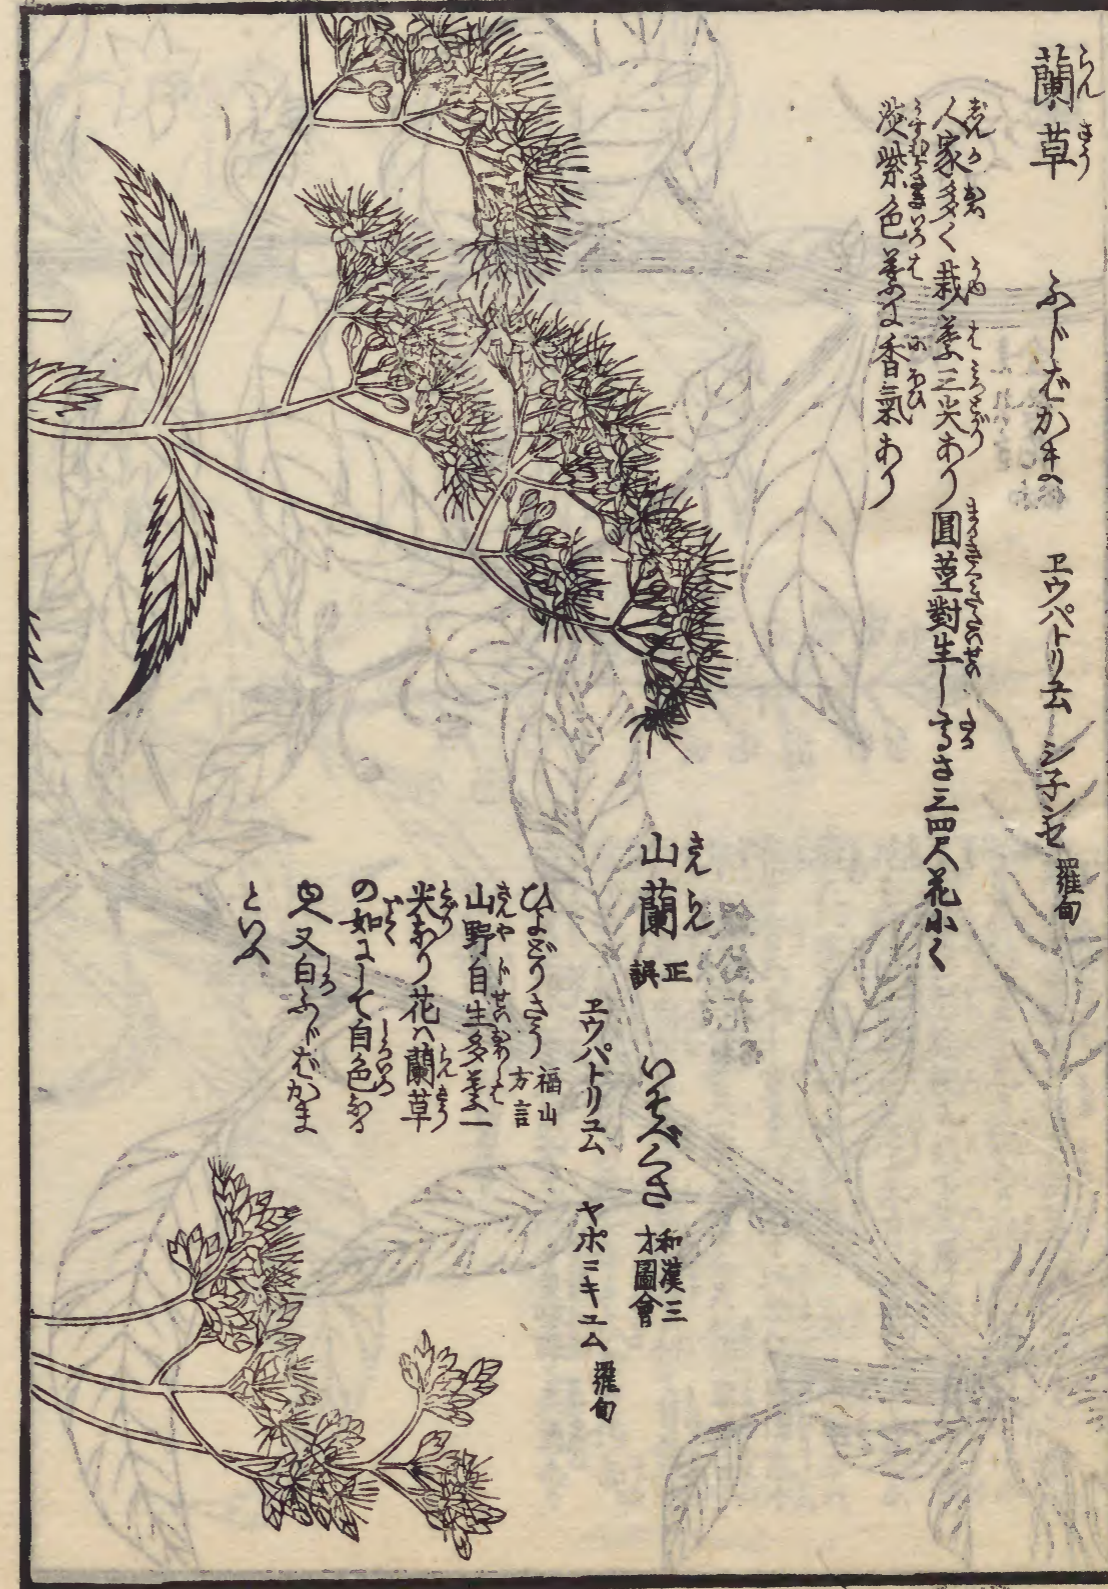 蘭草 ふぢばかま ヱウパトリユム シ子ンセ 羅甸
人家多く栽葉三尖あり圓莖對生し高さ三四尺花小く
淡紫色葉に香氣あり
山蘭 正誤 いそべくさ 和漢三才圖會
ヱウパトリユム ヤポニキユム 羅甸
ひよどりさう 福山方言
山野自生多葉一
尖あり花ハ蘭草
の如にして白色なる
又白ふぢばかま
といふ